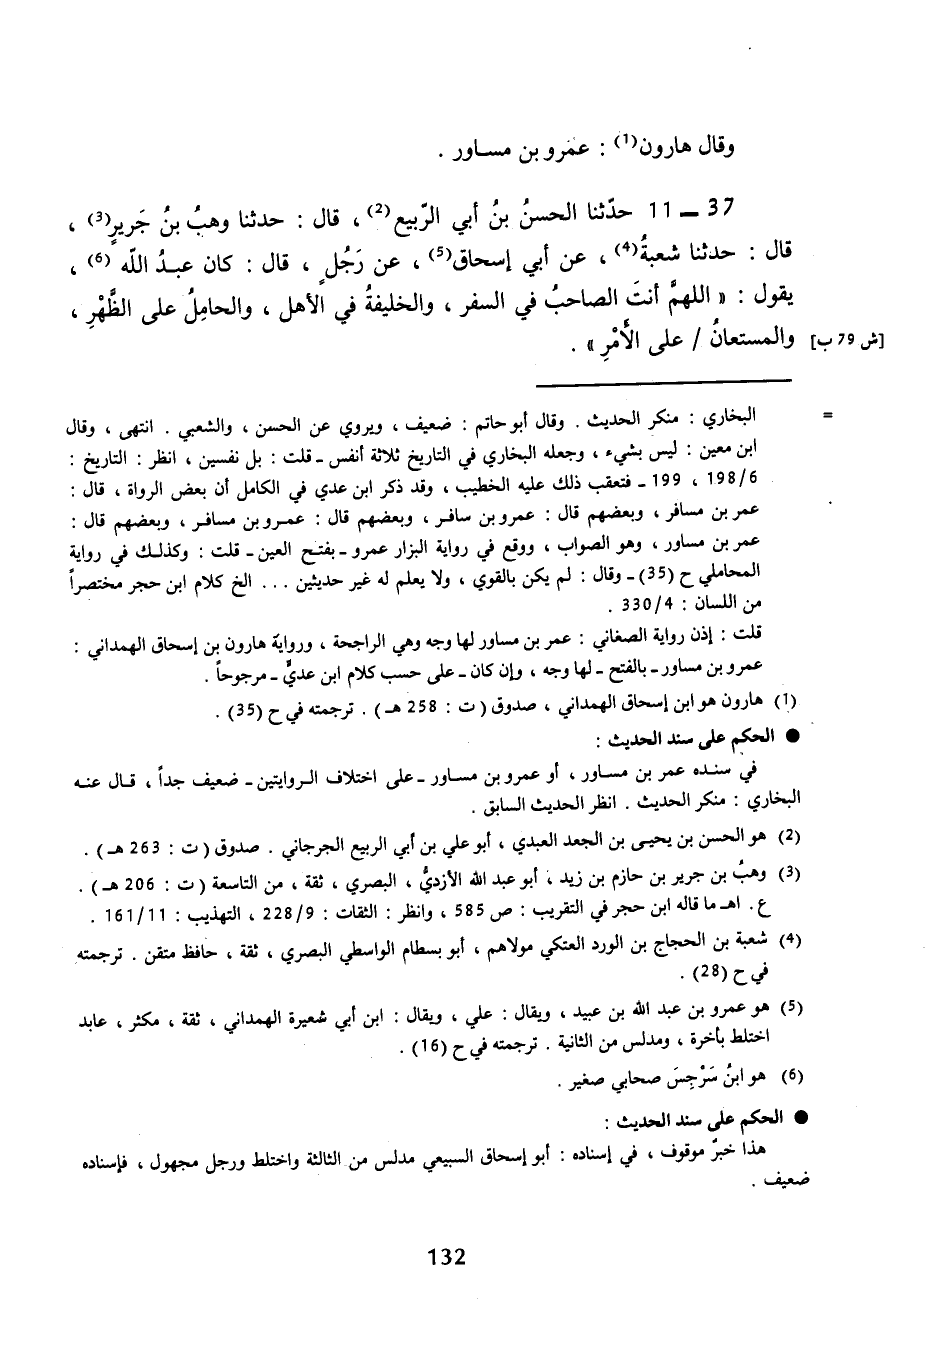 وقال هارون(1) : عَمرو بن مساور .
37 ــ 11 حدّثنا الحسنُ بنُ أبي الرّبيع(2) ، قال : حدثنا وهبُ بنُ جَريرٍ(3) ،
قال : حدثنا شعبةُ(4) ، عن أبي إسحاق(5) ، عن رَجُلٍ ، قال : كان عبدُ الله (6) ،
يقول : « اللهمَّ أنتَ الصاحبُ في السفر ، والخليفةُ في الأهل ، والحامِلُ على الظَّهْرِ ،
والمستعانُ / على الأَمْرِ » . [ش 79 ب]
= البخاري : منكر الحديث . وقال أبو حاتم : ضعيف ، ويروي عن الحسن ، والشعبي . انتهى ، وقال
ابن معين : ليس بشيء ، وجعله البخاري في التاريخ ثلاثة أنفس ـ قلت : بل نفسين ، انظر : التاريخ :
198/6 ، 199 ـ فتعقب ذلك عليه الخطيب ، وقد ذكر ابن عدي في الكامل أن بعض الرواة ، قال :
عمر بن مسافر ، وبعضهم قال : عمرو بن سافر ، وبعضهم قال : عمرو بن مسافر ، وبعضهم قال :
عمر بن مساور ، وهو الصواب ، ووقع في رواية البزار عمرو ـ بفتح العين ـ قلت : وكذلك في رواية
المحاملي ح (35) ـ وقال : لم يكن بالقوي ، ولا يعلم له غير حديثين ... الخ كلام ابن حجر مختصراً
من اللسان : 330/4 .
قلت : إذن رواية الصغاني : عمر بن مساور لها وجه وهي الراجحة ، ورواية هارون بن إسحاق الهمداني :
عمرو بن مساور ـ بالفتح ـ لها وجه ، وإن كان ـ على حسب كلام ابن عديٍّ ـ مرجوحاً .
(1) هارون هو ابن إسحاق الهمداني ، صدوق (ت : 258 هـ) . ترجمته في ح (35) .
● الحكم على سند الحديث :
في سنده عمر بن مساور ، أو عمرو بن مساور ـ على اختلاف الروايتين ـ ضعيف جداً ، قال عنه
البخاري : منكر الحديث . انظر الحديث السابق .
(2) هو الحسن بن يحيى بن الجعد العبدي ، أبو علي بن أبي الربيع الجرجاني . صدوق (ت : 263 هـ) .
(3) وهبُ بن جرير بن حازم بن زيد ، أبو عبد الله الأزديُّ ، البصري ، ثقة ، من التاسعة (ت : 206 هـ) .
ع . اهـ ما قاله ابن حجر في التقريب : ص 585 ، وانظر : الثقات : 228/9 ، التهذيب : 161/11 .
(4) شعبة بن الحجاج بن الورد العتكي مولاهم ، أبو بسطام الواسطي البصري ، ثقة ، حافظ متقن . ترجمته
في ح (28) .
(5) هو عمرو بن عبد الله بن عبيد ، ويقال : علي ، ويقال : ابن أبي شعيرة الهمداني ، ثقة ، مكثر ، عابد
اختلط بأخرة ، ومدلس من الثانية . ترجمته في ح (16) .
(6) هو ابنُ سَرْجِسَ صحابي صغير .
● الحكم على سند الحديث :
هذا خبرٌ موقوف ، في إسناده : أبو إسحاق السبيعي مدلس من الثالثة واختلط ورجل مجهول ، فإسناده
ضعيف .
132